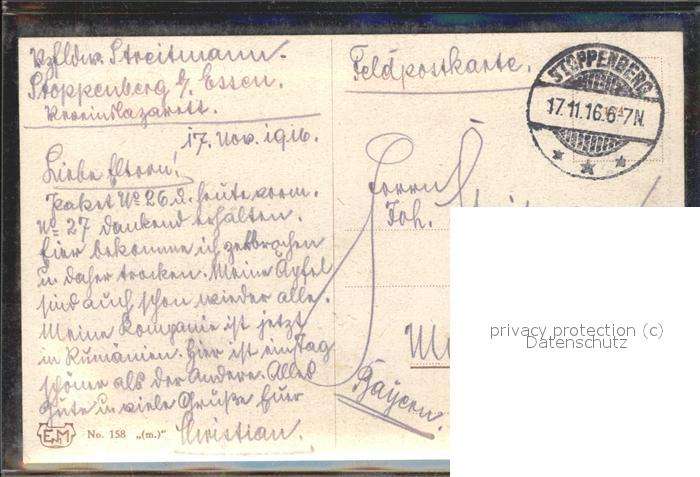 Vzfldw. Streitmann.
Stoppenberg b/ Essen.
Vereinslazarett.
17. Nov. 1916.
Liebe Eltern!
Paket No 26 u. heute vorm.
No 27 dankend erhalten.
Eier bekomme ich zerbrochen
u. daher trocken. Meine Äpfel
sind auch schon wieder alle.
Meine Kompanie ist jetzt
in Rumänien. Hier ist ein Tag
schöner als der Andere. Alles
Gute u. viele Grüße Euer
Christian.
No. 158 „(m.)“
EM
Feldpostkarte.
STOPPENBERG
17.11.16.6-7N
Herrn
Joh.
Bayern.
privacy protection (c)
Datenschutz